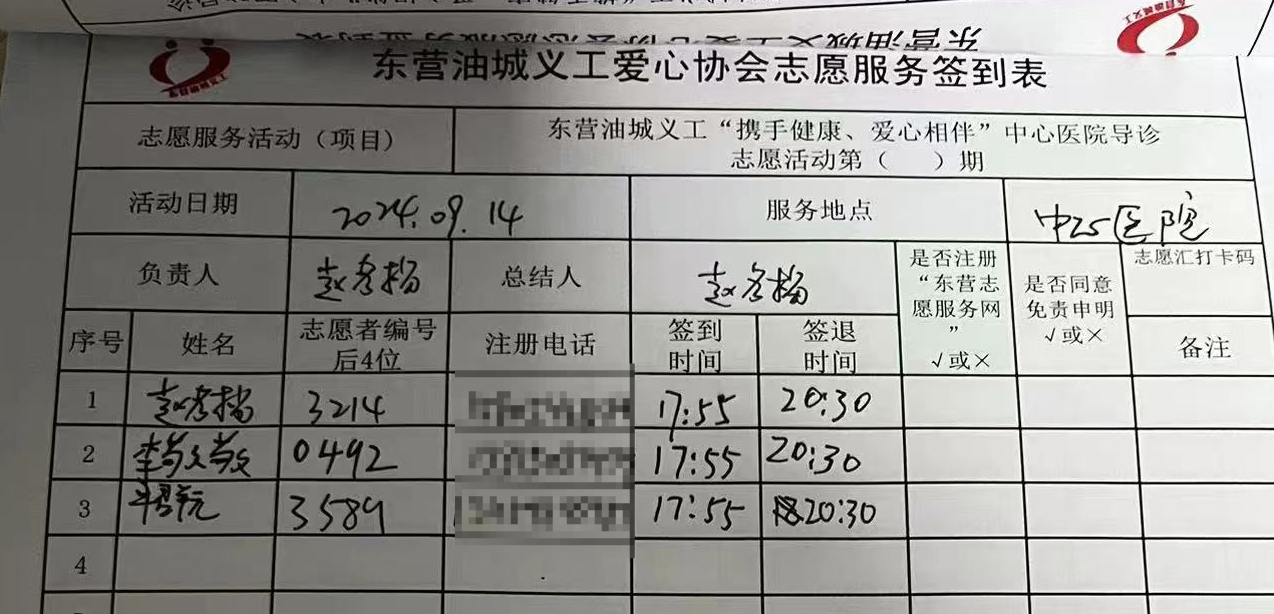 东营油城义工爱心协会志愿服务签到表
志愿服务活动（项目）
东营油城义工“携手健康、爱心相伴”中心医院导诊
志愿活动第（ ）期
活动日期
2024.09.14
服务地点
中心医院
负责人
赵孝杨
总结人
赵孝杨
是否注册
“东营志
愿服务网
”
√或×
是否同意
免责申明
√或×
志愿汇打卡码
序号
姓名
志愿者编号
后4位
注册电话
签到
时间
签退
时间
备注
1
赵孝杨
3214
17:55
20:30
2
李
0492
17:55
20:30
3
3589
17:55
20:30
4